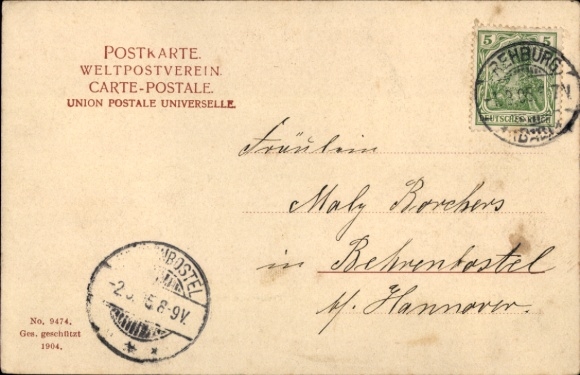 POSTKARTE.
WELTPOSTVEREIN.
CARTE-POSTALE.
UNION POSTALE UNIVERSELLE.
5 5
DEUTSCHES REICH
REHBURG
Fräulein
Maly Borchers
in Behrenbostel
b/. Hannover.
BOSTEL
5.8-9V.
No. 9474.
Ges. geschützt
1904.